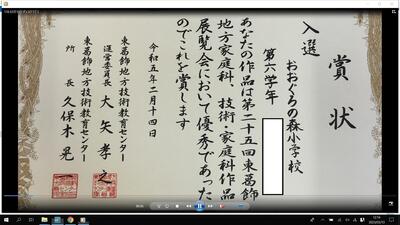 賞状
入選
おおぐろの森小学校
第六学年
あなたの作品は第二十五回東葛飾
地方家庭科、技術・家庭科作品
展覧会において優秀であった
のでこれを賞します
令和五年二月十四日
東葛飾地方技術教育センター
運営委員長 大矢孝之
東葛飾地方技術教育センター
所長 久保木晃一